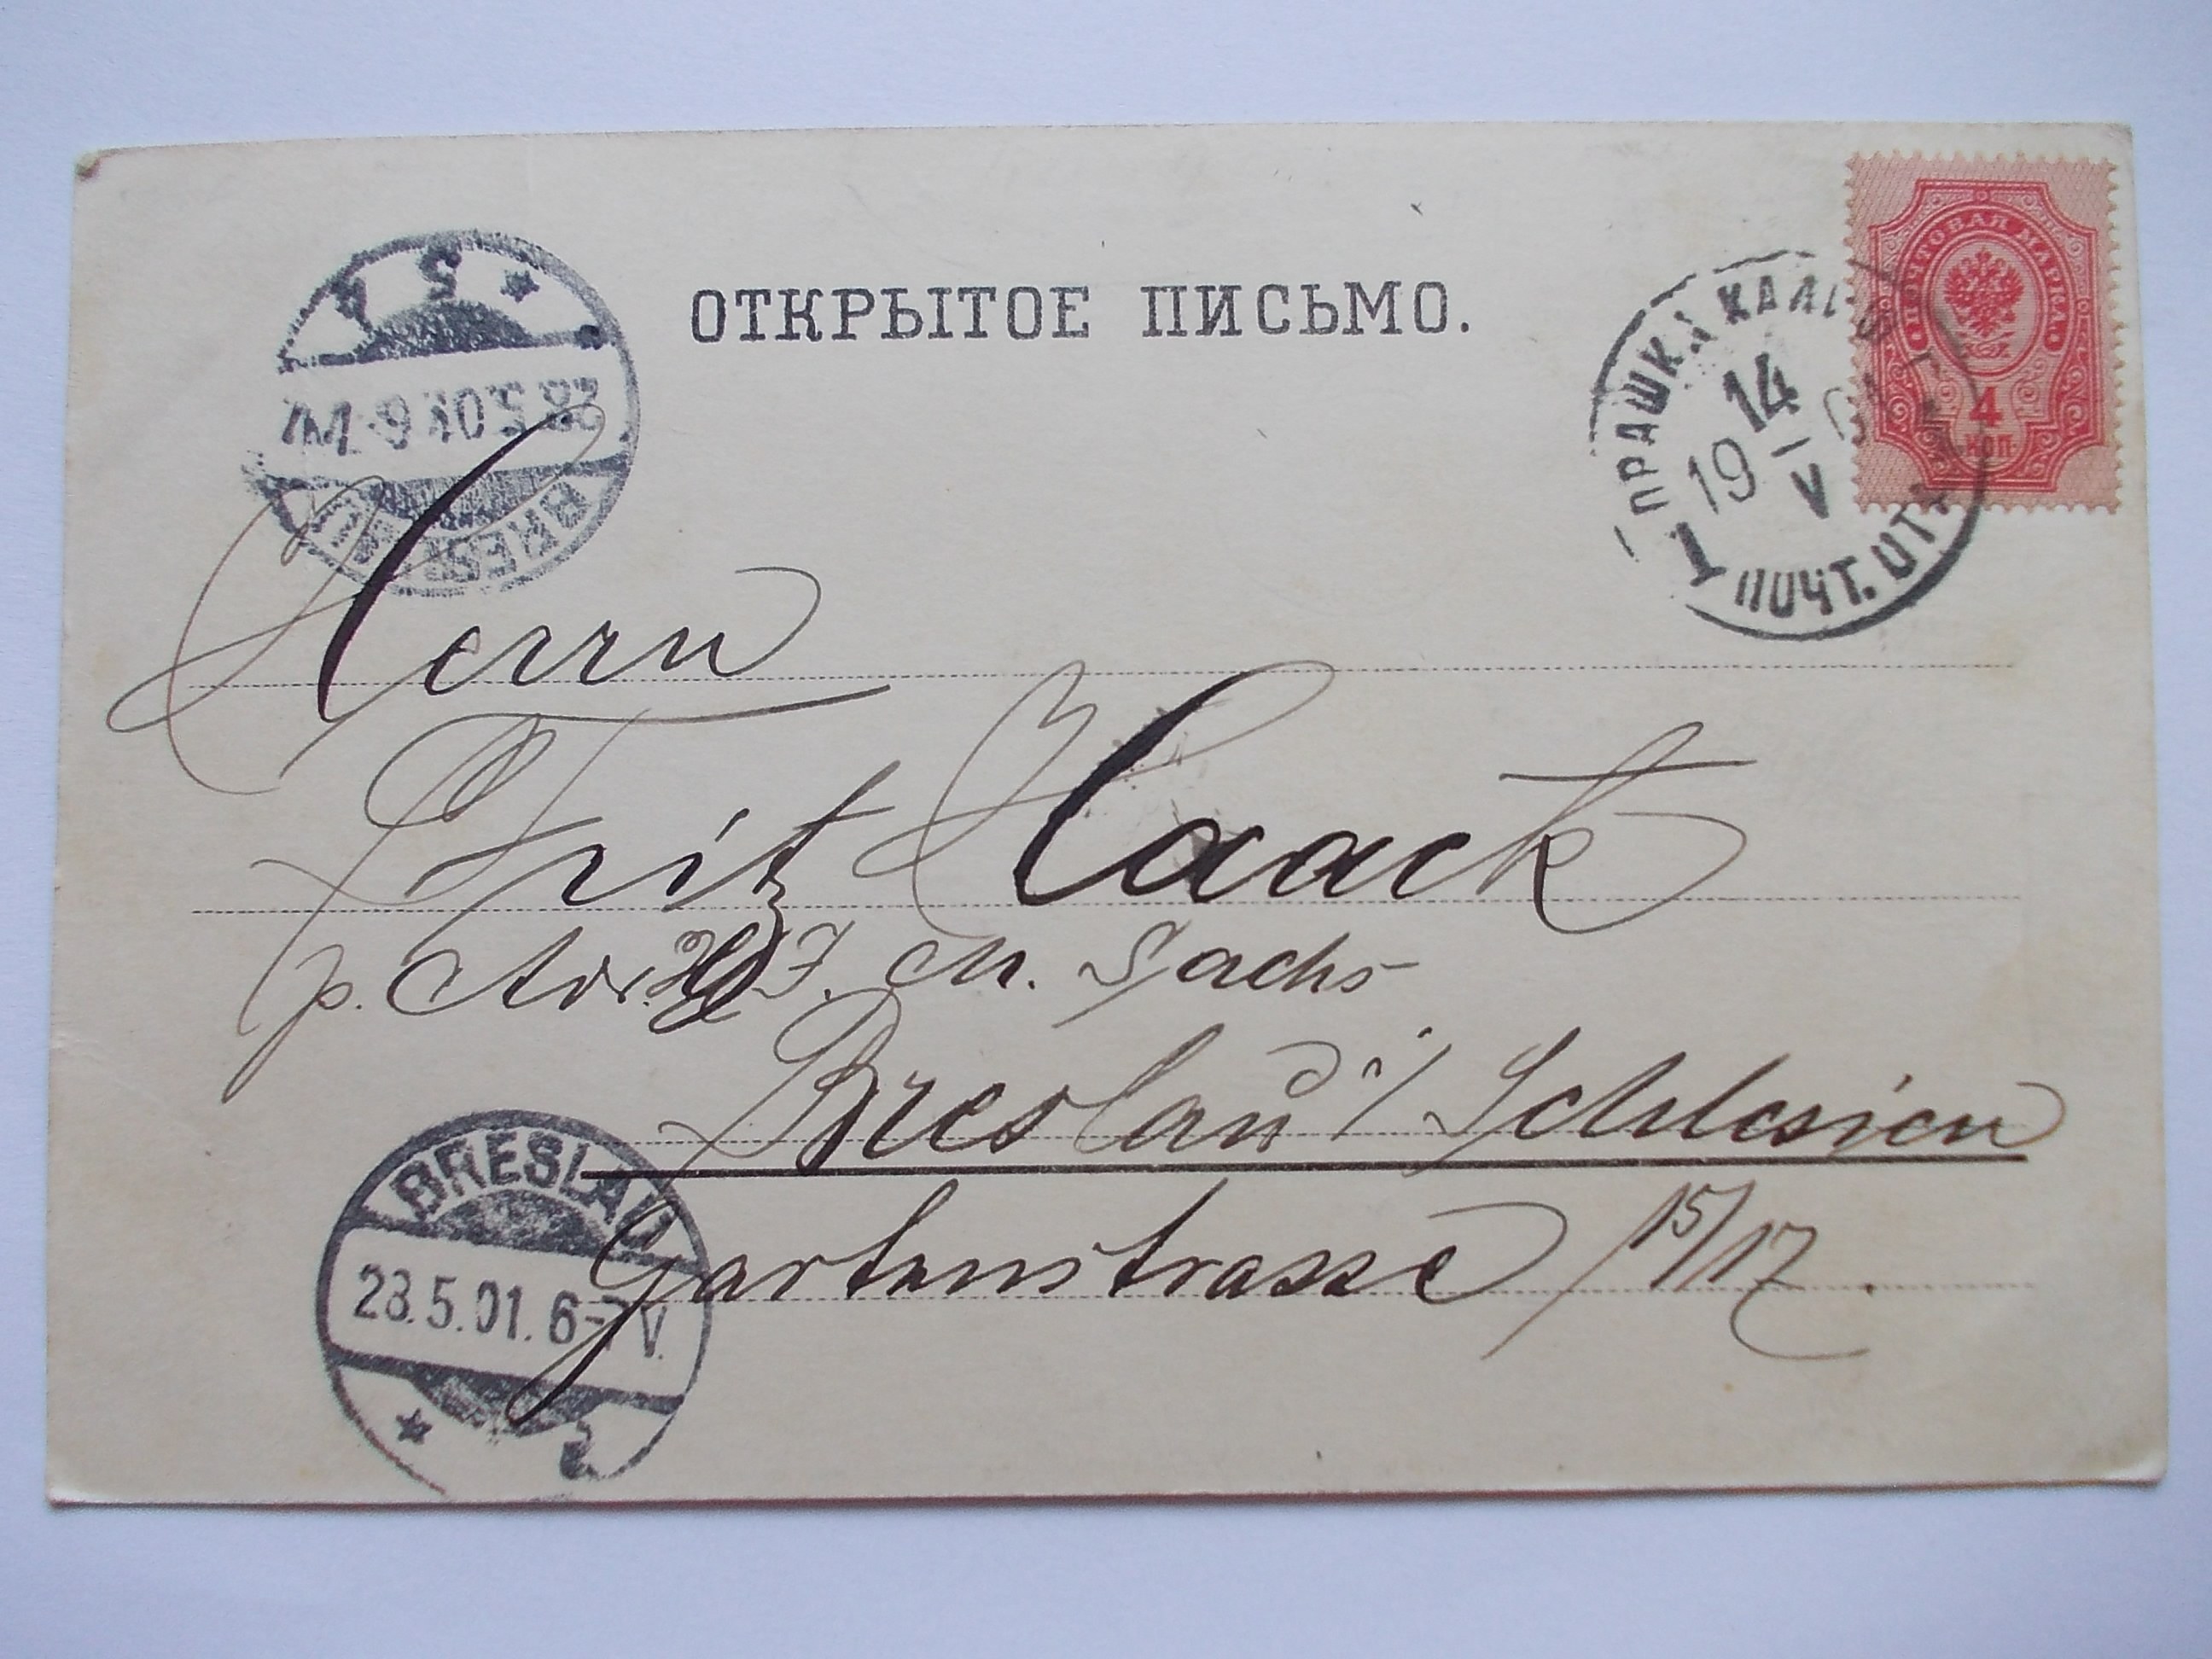 ОТКРЫТОЕ ПИСЬМО.
ПОЧТОВАЯ МАРКА
4
КОП
ПРАШКА КАЛИШ
14
19 V 01
1 ПОЧТ. ОТ
BRESLAU
28.5.01 6-7V.
5
Herrn
Fritz Haack
p. Adr. J. M. Sachs
Breslau i/ Schlesien
Gartenstrasse 15/17.
BRESLAU
28.5.01. 6-7V.